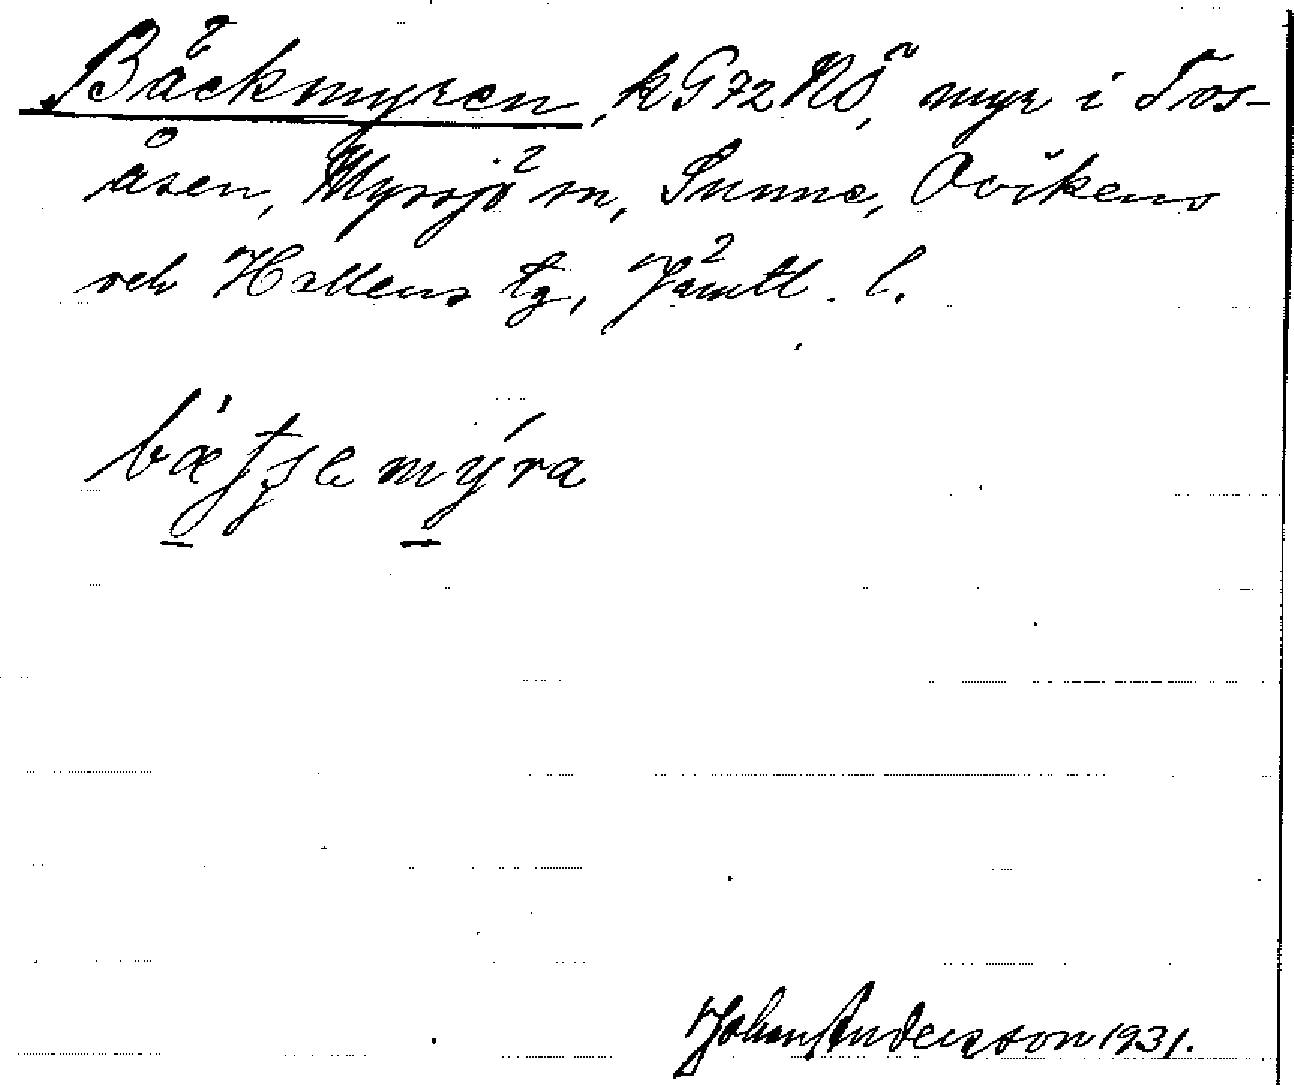 Bäckmyren, k G 72 RÖ, myr i Tos-
åsen, Myrsjö sn, Sunne, Ovikens
och Hallens tg, Jämtl. l.
myra
Johan Andersson 1931.